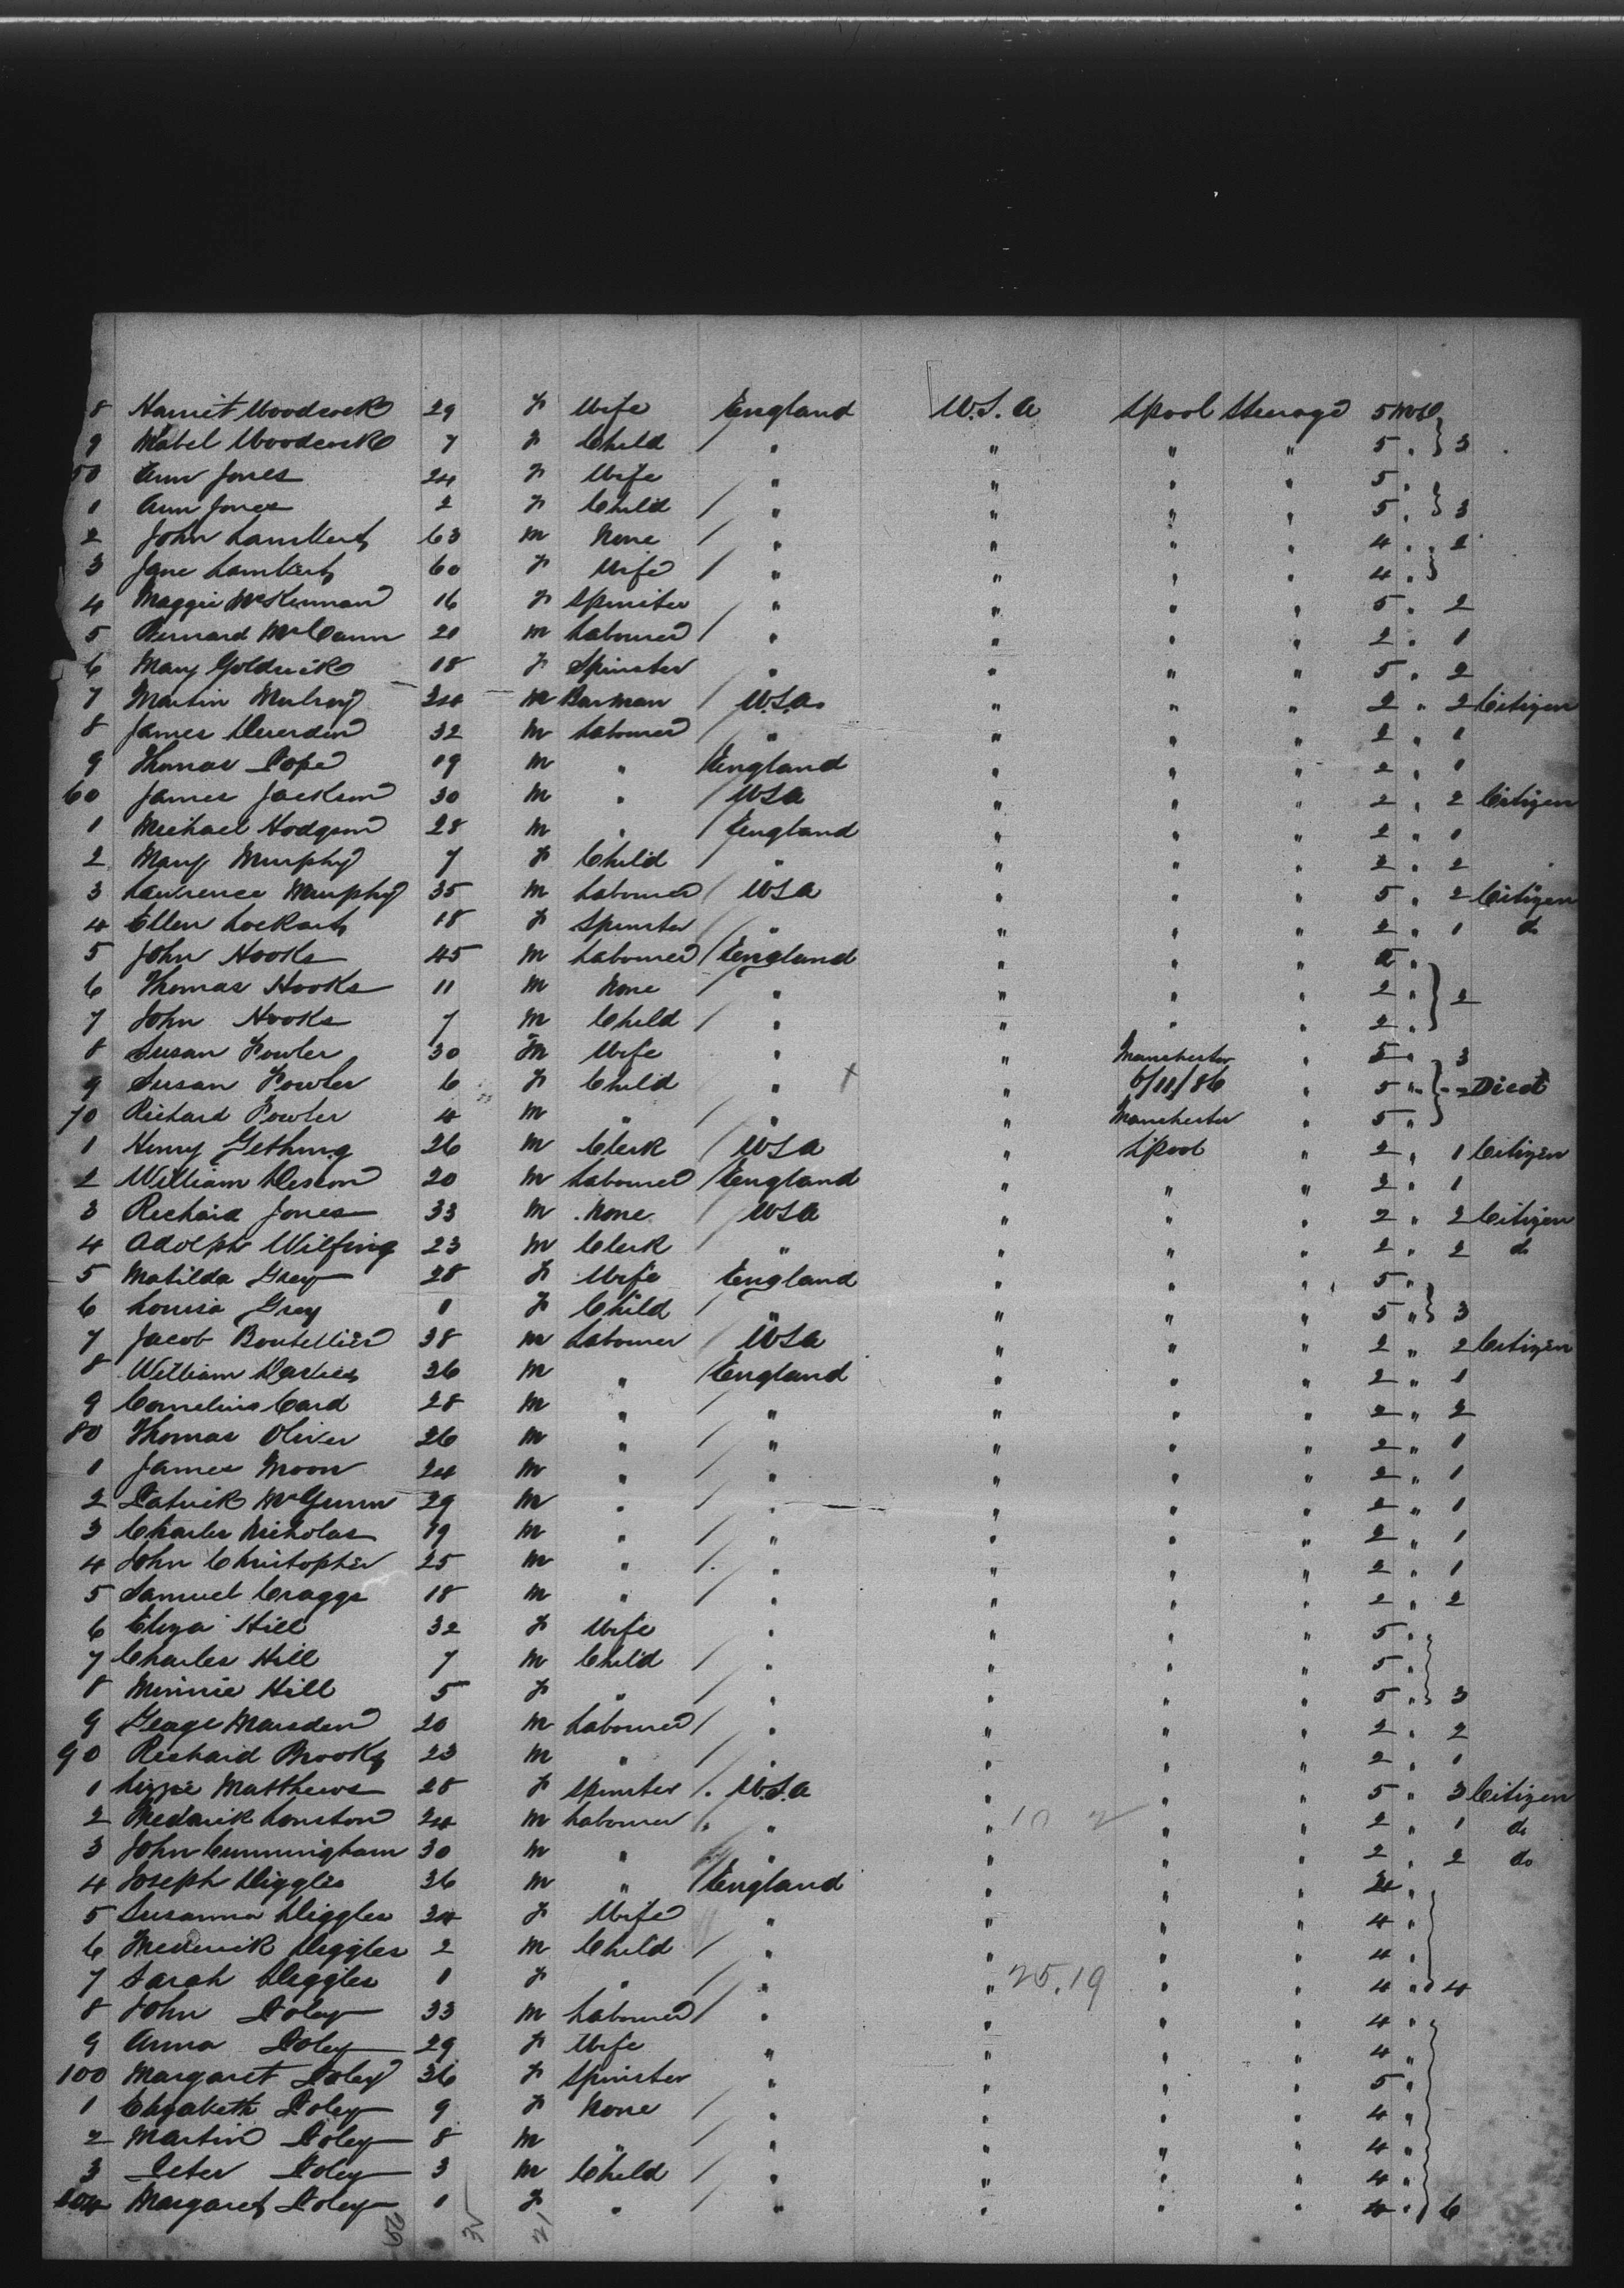 8 Harriet Woodcock 29 F Wife England U.S.A Lpool Steerage 5 No 50
9 Mabel Woodcock 7 F Child / " " " " 5 " } 3
50 Ann Jones 24 F Wife " " " " 5 "
1 Ann Jones 2 F Child / " " " " 5 " } 3
2 John Lambert 63 M None / " " " " 4 " " 2
3 Jane Lambert 60 F Wife / " " " " 4 " }
4 Maggie McKinnan 16 F Spinster " " " " 5 " 2
5 Bernard McCann 20 M Labourer / " " " " 2 " 1
6 Mary Goldrick 18 F Spinster " " " " 5 " 2
7 Martin Mulroy 24 M Barman / U.S.A. " " " 2 " 2 Citizen
8 James Duerden 32 M Labourer / " " " " 2 " 1
9 Thomas Pope 19 M " / England " " " 2 " 1
60 James Jackson 30 M " / USA " " " 2 " 2 Citizen
1 Michael Hodgson 28 M " / England " " " 2 " 1
2 Mary Murphy 7 F Child / " " " " 2 " 2
3 Lawrence Murphy 35 M Labourer / USA " " " 5 " 2 Citizen
4 Ellen Lockart 18 F Spinster / " " " " 2 " 1 do
5 John Hooks 45 M Labourer / England " " " 2 "
6 Thomas Hooks 11 M None / " " " " 2 " } 2
7 John Hooks 7 M Child / " " " " 2 "
8 Susan Fowler 30 Wife " " Manchester " 5 " 3
9 Susan Fowler 6 F Child " + " 6/11/86 " 5 " } Died
70 Richard Fowler 4 M " / " " Manchester " 5 "
1 Henry Gething 26 M Clerk / USA " Lpool " 2 " 1 Citizen
2 William Deson 20 M Labourer / England " " " 2 " 1
3 Richard Jones 33 M None / USA " " " 2 " 2 Citizen
4 Adolph Wilfing 23 M Clerk " " " " 2 " 2 do
5 Matilda Grey 28 F Wife England " " " 5 "
6 Louisa Grey 1 F Child / " " " " 5 " } 3
7 Jacob Boutellier 38 M Labourer / USA " " " 2 " 2 Citizen
8 William 26 M " / England " " " 2 " 1
9 Cornelius Card 28 M " / " " " " 2 " 2
80 Thomas Oliver 26 M " / " " " " 2 " 1
1 James Moon 24 M " / " " " " 2 " 1
2 Patrick McGunn 29 M " / " " " " 2 " 1
3 Charles Nicholas 19 M " / " " " " 2 " 1
4 John Christopher 25 M " / " " " " 2 " 1
5 Samuel Craggs 18 M " / " " " " 2 " 2
6 Eliza Hill 32 F Wife " " " " 5 "
7 Charles Hill 7 M Child / " " " " 5 "
8 Minnie Hill 5 F " / " " " " 5 " } 3
9 George Marsden 20 M Labourer / " " " " 2 " 2
90 Richard Brooks 23 M " / " " " " 2 " 1
1 Lizzie Matthews 28 F Spinster / U.S.A " " " 5 " 3 Citizen
2 Frederick Lonston 24 M Labourer / " " 10 2 " " 2 " 1 do
3 John Cunningham 30 M " " " " " 2 " 2 do
4 Joseph Diggles 36 M " / England " " " 4 "
5 Susanna Diggles 34 F Wife " " " " 4 "
6 Frederick Diggles 2 M Child / " " " " 4 "
7 Sarah Diggles 1 F " / " " 25.19 " " 4 " } 4
8 John Foley 33 M Labourer / " " " " 4 "
9 Anna Foley 29 F Wife " " " " 4 "
100 Margaret Foley 36 F Spinster " " " " 5 "
1 Elizabeth Foley 9 F None / " " " " 4 "
2 Martin Foley 8 M " / " " " " 4 "
3 Peter Foley 3 M Child / " " " " 4 "
104 Margaret Foley 1 F " / " " " " 4 " } 6